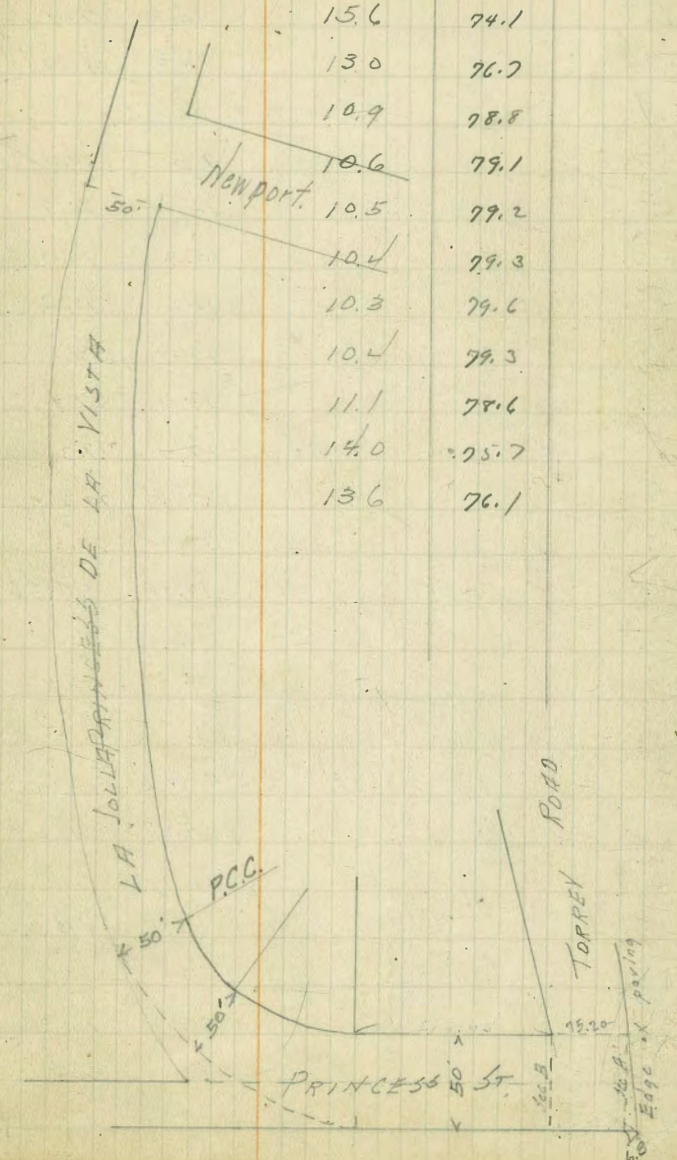 15.6 74.1
13.0 76.7
10.9 78.8
10.6 79.1
Newport.
50' 10.5 79.2
10.4 79.3
10.3 79.6
10.4 79.3
11.1 78.6
14.0 75.7
13.6 76.1
LA JOLLA PRINCESS DE LA VISTA
P.C.C.
50'
50'
TORREY ROAD
25.20
PRINCESS ST.
50'
Sec B
Sec A
Edge of paving